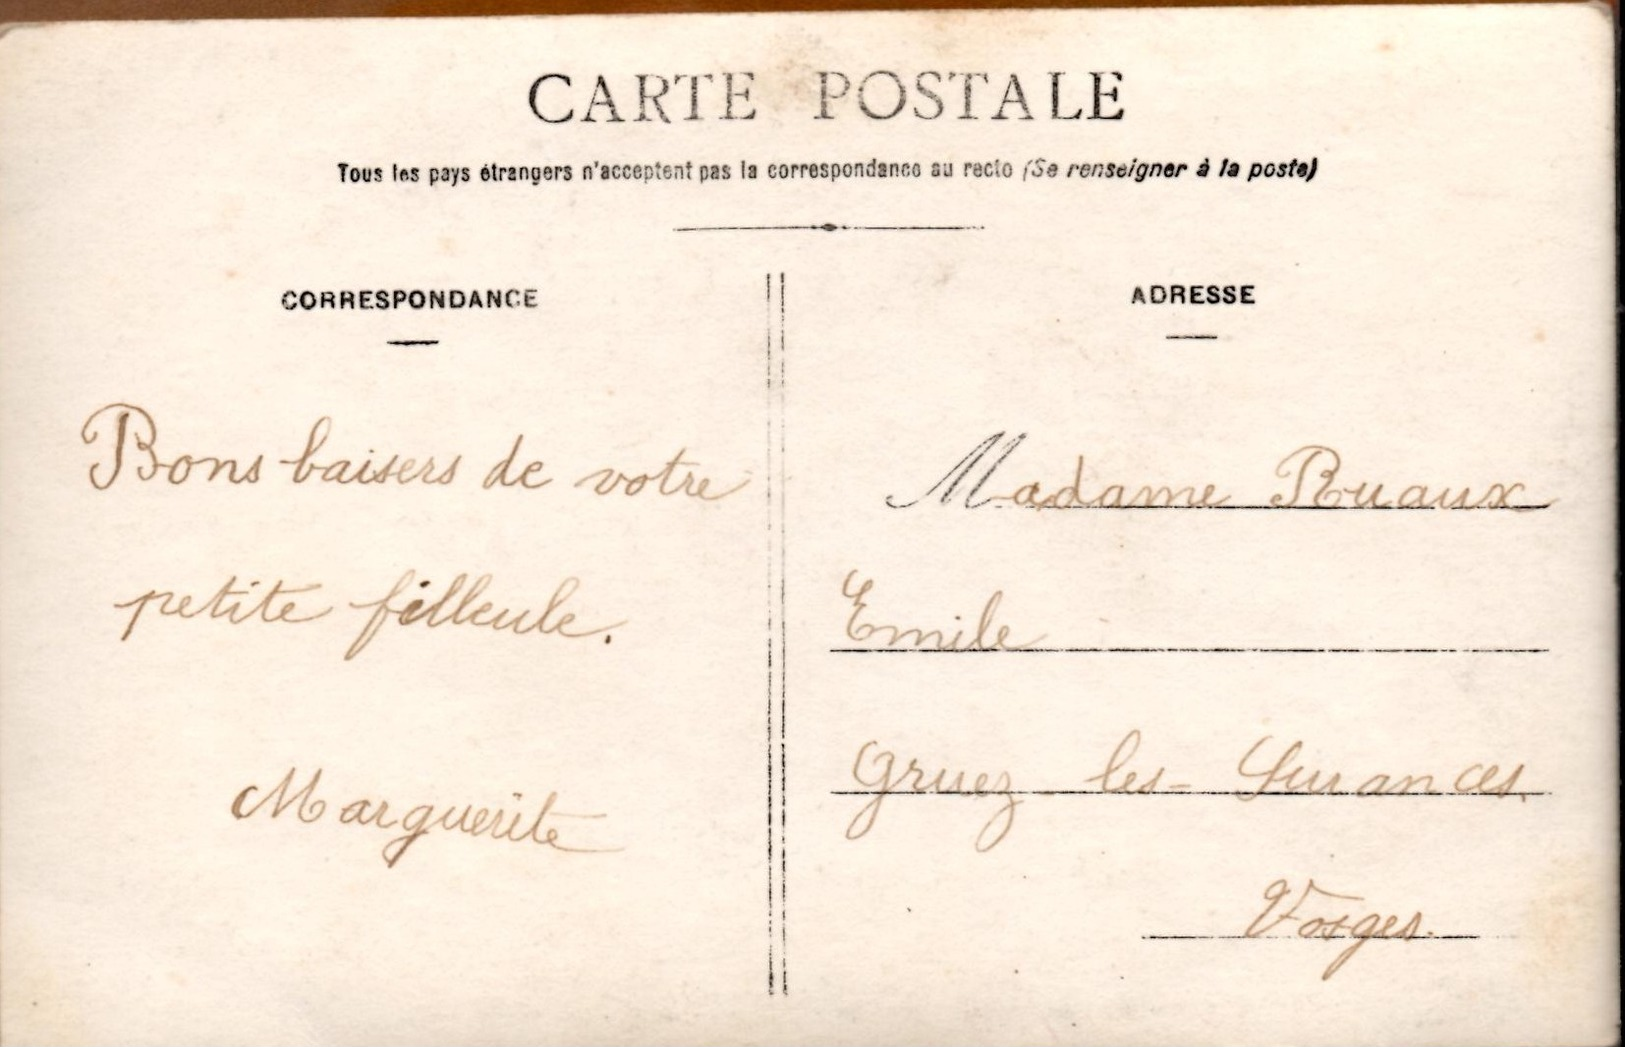 CARTE POSTALE
Tous les pays étrangers n'acceptent pas la correspondance au recto (Se renseigner à la poste)
CORRESPONDANCE
Bons baisers de votre
petite filleule.
Marguerite
ADRESSE
Madame Ruaux
Emile
Gruez-les-Surances.
Vosges.